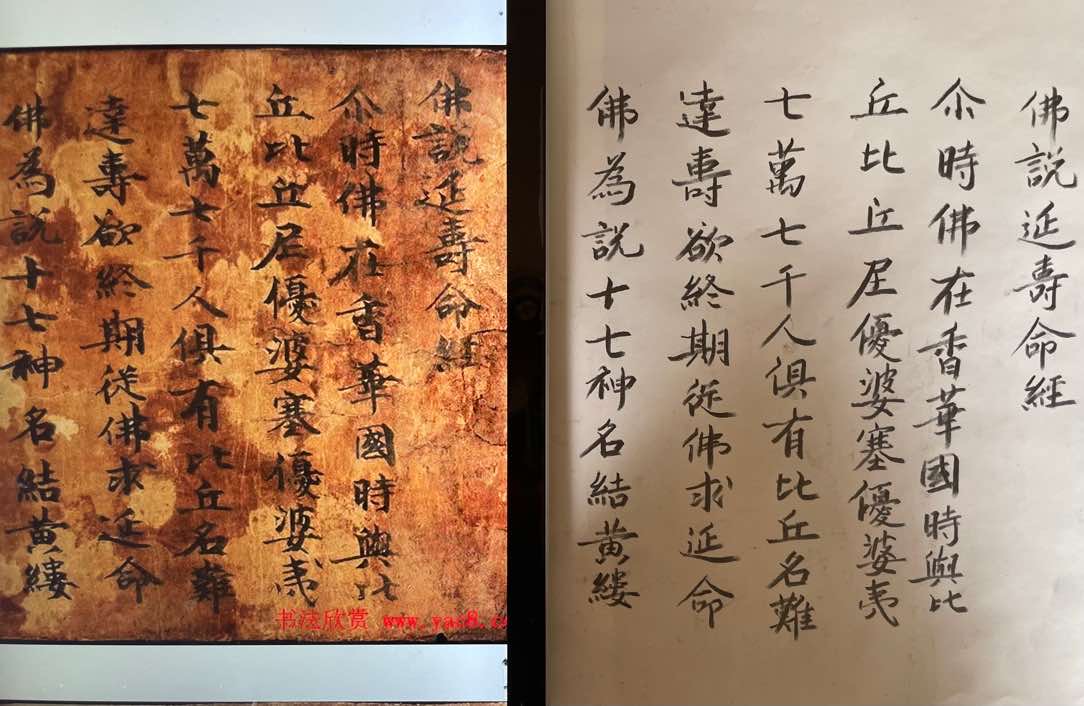 佛說延壽命經
尒時佛在香華國時與比
丘比丘尼優婆塞優婆夷
七萬七千人俱有比丘名難
達壽欲終期從佛求延命
佛為說十七神名結黃縷
书法欣赏 www.yac8.co
佛說延壽命經
尒時佛在香華國時與比
丘比丘尼優婆塞優婆夷
七萬七千人俱有比丘名難
達壽欲終期從佛求延命
佛為說十七神名結黃縷